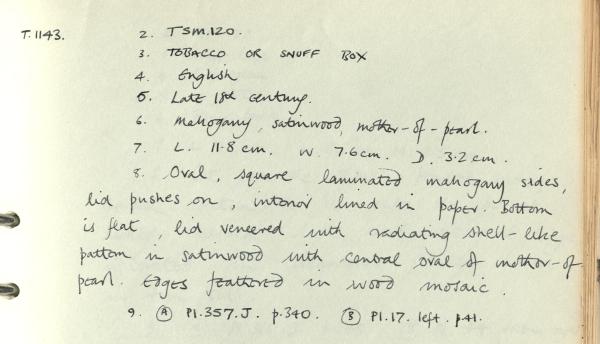 T.1143. 2. TSM.120.
3. TOBACCO OR SNUFF BOX
4. English
5. Late 18th century.
6. Mahogany, satinwood, mother-of-pearl.
7. L. 11.8 cm. W. 7.6cm. D. 3.2 cm.
8. Oval, square laminated mahogany sides,
lid pushes on, interior lined in paper. Bottom
is flat, lid veneered with radiating shell-like
pattern in satinwood with central oval of mother-of-
pearl. Edges feathered in wood mosaic.
9. (A) Pl.357.J. p.340. (B) Pl.17. left. p.41.